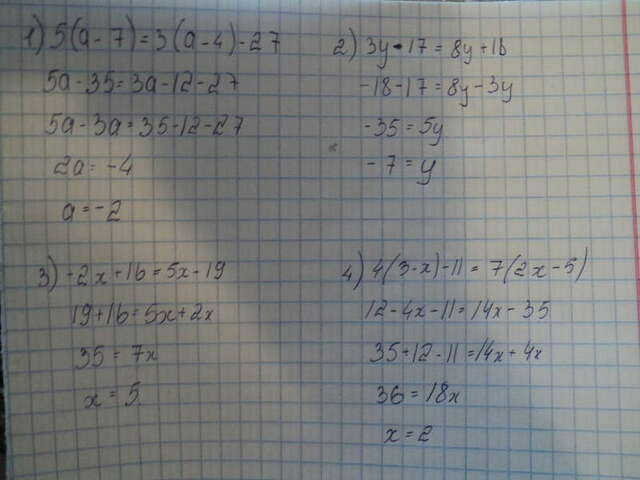 1) 5(a-7)=3(a-4)-27
5a-35=3a-12-27
5a-3a=35-12-27
2a=-4
a=-2
2) 3y-17=8y+16
-18-17=8y-3y
-35=5y
-7=y
3) -2x+16=5x-19
19+16=5x+2x
35=7x
x=5
4) 4(3-x)-11=7(2x-5)
12-4x-11=14x-35
35+12-11=14x+4x
36=18x
x=2